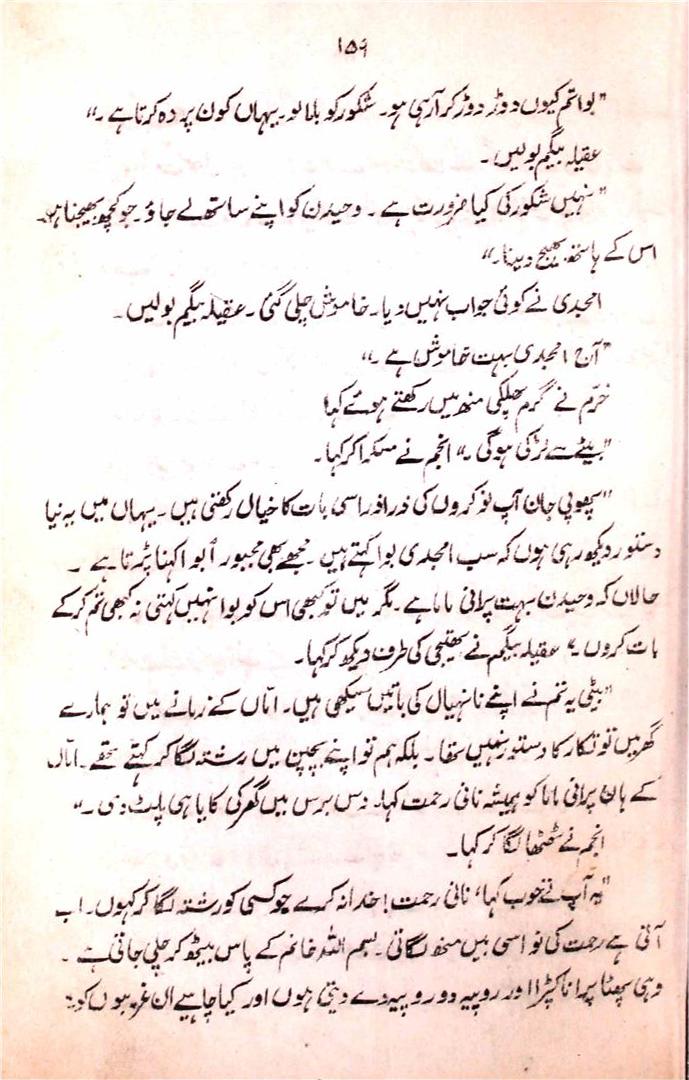 ۱۵۹
"بوا تم کیوں دوڑ دوڑ کر آ رہی ہو۔ شکور کو بلا لو۔ یہاں کون پردہ کرتا ہے۔"
عقیلہ بیگم بولیں۔
"نہیں شکور کی کیا ضرورت ہے۔ وحیدن کو اپنے ساتھ لے جاؤ۔ جو کچھ بھیجنا ہو۔
اس کے ہاتھ بھیج دینا۔"
امجدی نے کوئی جواب نہیں دیا۔ خاموش چلی گئی۔ عقیلہ بیگم بولیں۔
"آج امجدی بہت خاموش ہے۔"
خرّم نے گرم پھلکی منھ میں رکھتے ہوئے کہا
"بیٹے سے لڑکی ہوگی۔" انجم نے مسکرا کر کہا۔
"پھوپی جان آپ نوکروں کی ذرا ذرا سی بات کا خیال رکھتی ہیں۔ یہاں میں یہ نیا
دستور دیکھ رہی ہوں کہ سب امجدی بوا کہتے ہیں۔ مجھے بھی مجبوراً بوا کہنا پڑتا ہے۔
حالاں کہ وحیدن بہت پرانی ماما ہے۔ مگر میں تو کبھی اس کو بوا نہیں کہتی نہ کبھی تم کر کے
بات کروں۔" عقیلہ بیگم نے بھتیجی کی طرف دیکھ کر کہا۔
"بیٹی یہ تم نے اپنے نانہیال کی باتیں سیکھی ہیں۔ اماں کے زمانے میں تو ہمارے
گھر میں تو تکار کا دستور نہیں تھا۔ بلکہ ہم تو اپنے بچپن میں رشتہ لگا کر کہتے تھے۔ اماں
کے ہاں پرانی ماما کو ہمیشہ نانی رحمت کہا۔ دس برس میں گھر کی کایا ہی پلٹ دی۔"
انجم نے ٹھٹھا لگا کر کہا۔
"یہ آپ نے خوب کہا، نانی رحمت! خدا نہ کرے جو کسی کو رشتہ لگا کر کہوں۔ اب
آتی ہے رحمت کی نواسی میں منھ نہیں لگاتی۔ بسم اللہ خانم کے پاس بیٹھ کر چلی جاتی ہے۔
وہی پھٹا پرانا کپڑا اور روپیہ دو روپیہ دے دیتی ہوں اور کیا چاہیے ان غریبوں کو؟